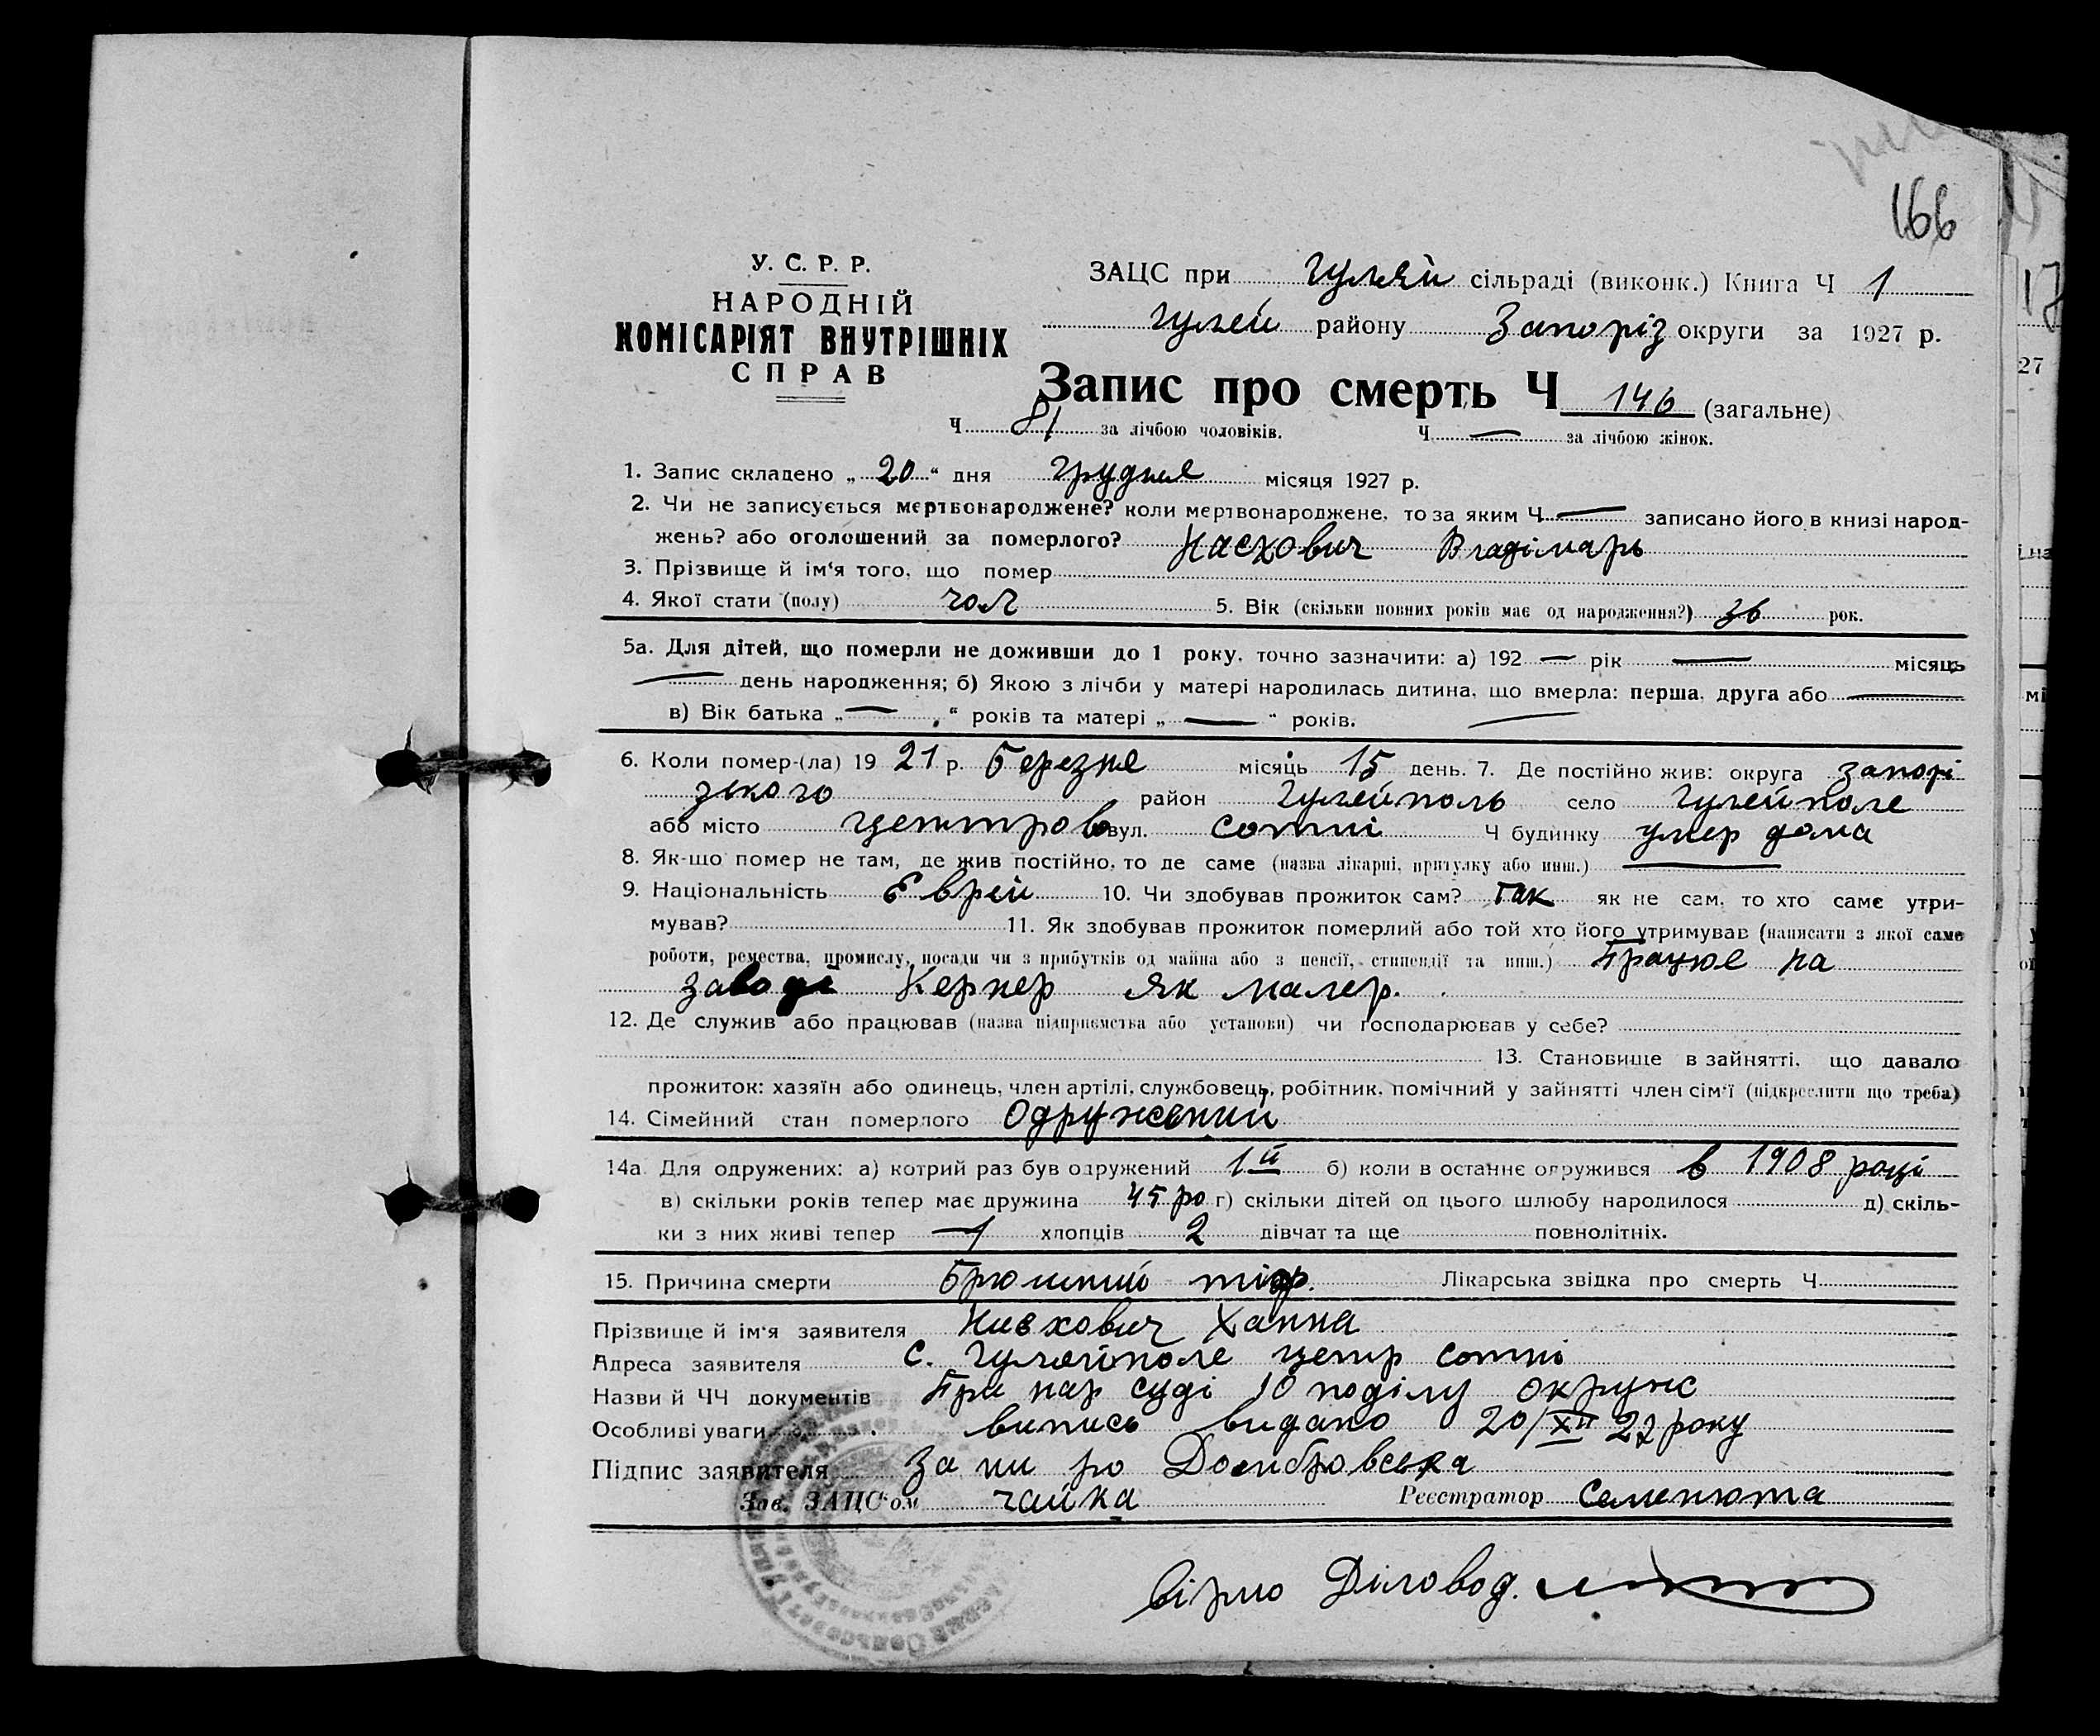 166
У. С. Р. Р.
НАРОДНІЙ
КОМІСАРІЯТ ВНУТРІШНІХ
СПРАВ
ЗАЦС при Гуляй сільраді (виконк.) Книга Ч 1
Гуляй району Запоріз округи за 1927 р.
Запис про смерть Ч 146 (загальне)
Ч 81 за лічбою чоловіків. Ч — за лічбою жінок.
1. Запис складено „ 20 “ дня грудня місяця 1927 р.
2. Чи не записується мертвонароджене? коли мертвонароджене, то за яким Ч — записано його в книзі народ-
жень? або оголошений за померлого? Насхович Владімарь
3. Прізвище й ім‘я того, що помер
4. Якої стати (полу) чол 5. Вік (скільки повних років має од народження?) 36 рок.
5а. Для дітей, що померли не доживши до 1 року, точно зазначити: а) 192 — рік — місяць
— день народження; б) Якою з лічби у матері народилась дитина, що вмерла: перша, друга або —
в) Вік батька „ — “ років та матері „ — “ років.
6. Коли помер-(ла) 19 21 р. Березня місяць 15 день. 7. Де постійно жив: округа запорі
зького район Гуляйполь село Гуляйполе
або місто центров вул. сотні Ч будинку умер дома
8. Як-що помер не там, де жив постійно, то де саме (назва лікарні, притулку або инш.) —
9. Національність Еврей 10. Чи здобував прожиток сам? так як не сам, то хто саме утри-
мував? 11. Як здобував прожиток померлий або той хто його утримував (написати з якої саме
роботи, ремества, промислу, посади чи з прибутків од майна або з пенсії, стипендії та инш.) Працюе на
заводі Кернер як маляр.
12. Де служив або працював (назва підприємства або установи) чи господарював у себе?
13. Становище в зайнятті, що давало
прожиток: хазяїн або одинець, член артілі, службовець, робітник, помічний у зайнятті член сім‘ї (підкреслити що треба)
14. Сімейний стан померлого Одружений
14а. Для одружених: а) котрий раз був одружений 1й б) коли в останнє одружився в 1908 році
в) скільки років тепер має дружина 45 ро г) скільки дітей од цього шлюбу народилося д) скіль-
ки з них живі тепер 1 хлопців 2 дівчат та ще повнолітніх.
15. Причина смерти Брюшний тіф. Лікарська звідка про смерть Ч
Прізвище й ім‘я заявителя Ханна
Адреса заявителя с. Гуляйполе центр сотні
Назви й ЧЧ документів При нар суді 10 поділу окружс
Особливі уваги випись видано 20/XII 27 року
Підпис заявителя За ни ро
Зав. ЗАЦС‘ом Чайка Реєстратор Семенюта
вірно Діловод.